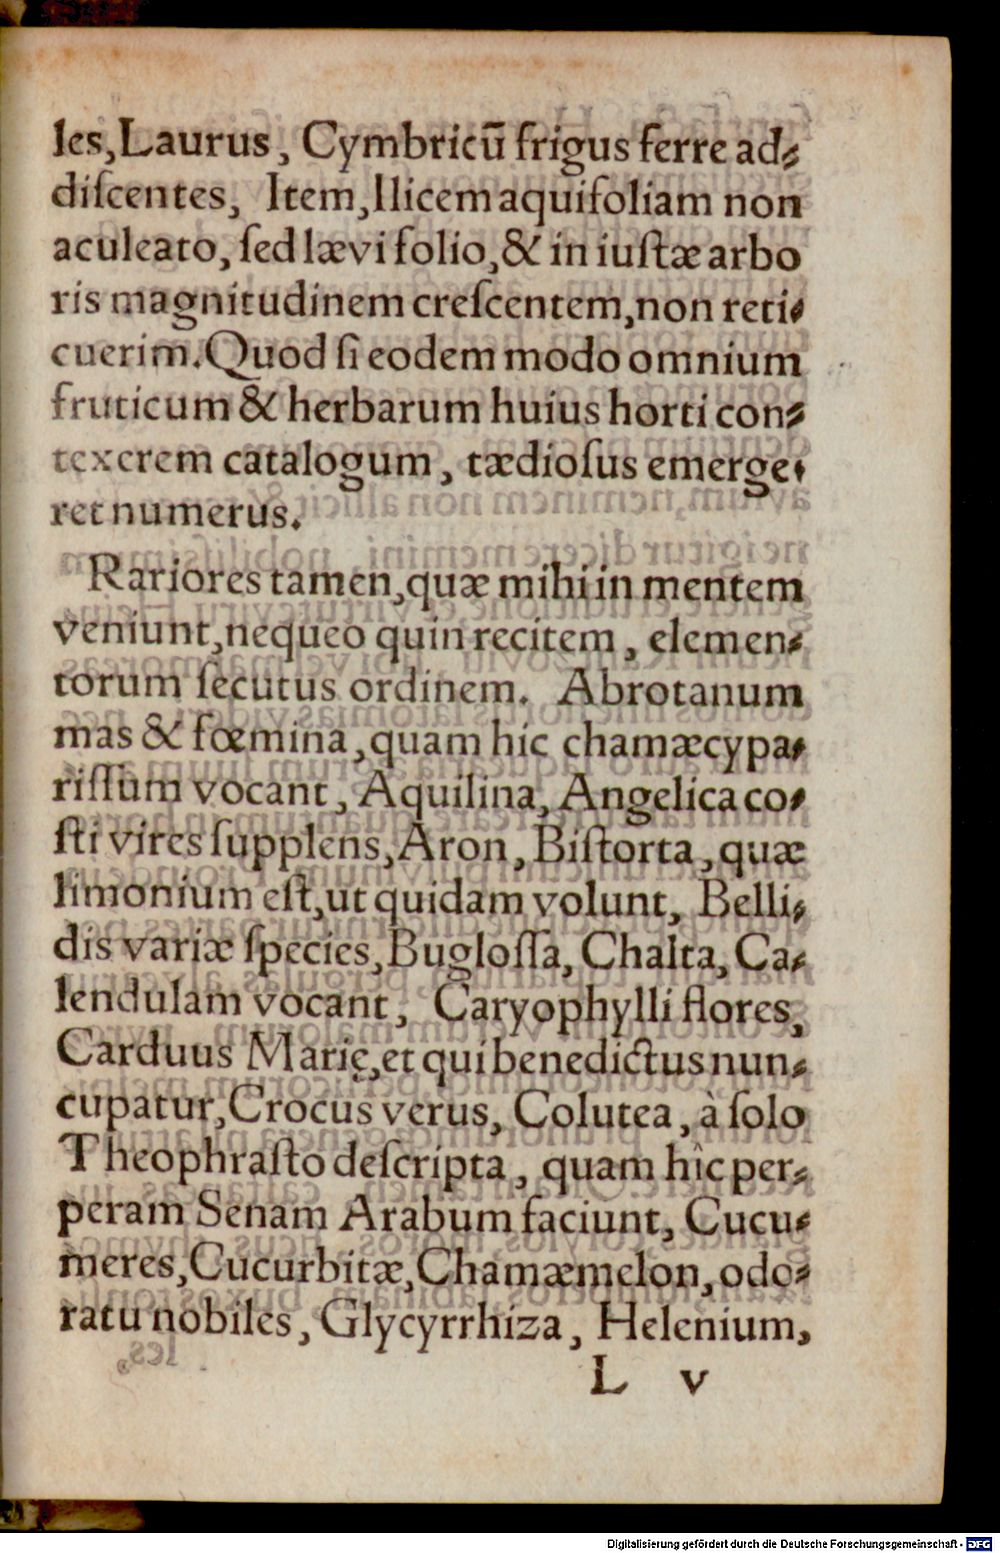 les, Laurus, Cymbricū frigus ferre ad⸗
diſcentes, Item, Ilicem aquifoliam non
aculeato, ſed lævi folio, & in iuſtæ arbo
ris magnitudinem creſcentem, non reti⸗
cuerim. Quod ſi eodem modo omnium
fruticum & herbarum huius horti con⸗
texerem catalogum, tædioſus emerge⸗
ret numerus.
Rariores tamen, quæ mihi in mentem
veniunt, nequeo quin recitem, elemen⸗
torum ſecutus ordinem. Abrotanum
mas & fœmina, quam hic chamæcypa⸗
riſſum vocant, Aquilina, Angelica co⸗
ſti vires ſupplens, Aron, Biſtorta, quæ
limonium eſt, ut quidam volunt, Belli⸗
dis variæ ſpecies, Bugloſſa, Chalta, Ca⸗
lendulam vocant, Caryophylli flores,
Carduus Marię, et qui benedictus nun⸗
cupatur, Crocus verus, Colutea, à ſolo
Theophraſto deſcripta, quam hîc per⸗
peram Senam Arabum faciunt, Cucu⸗
meres, Cucurbitæ, Chamæmelon, odo⸗
ratu nobiles, Glycyrrhiza, Helenium,
L v
Digitalisierung gefördert durch die Deutsche Forschungsgemeinschaft - DFG